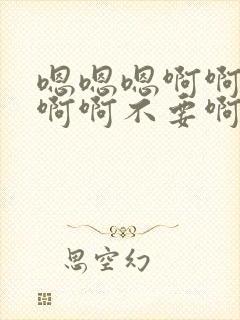 嗯嗯嗯啊啊
啊啊不要啊
思空幻